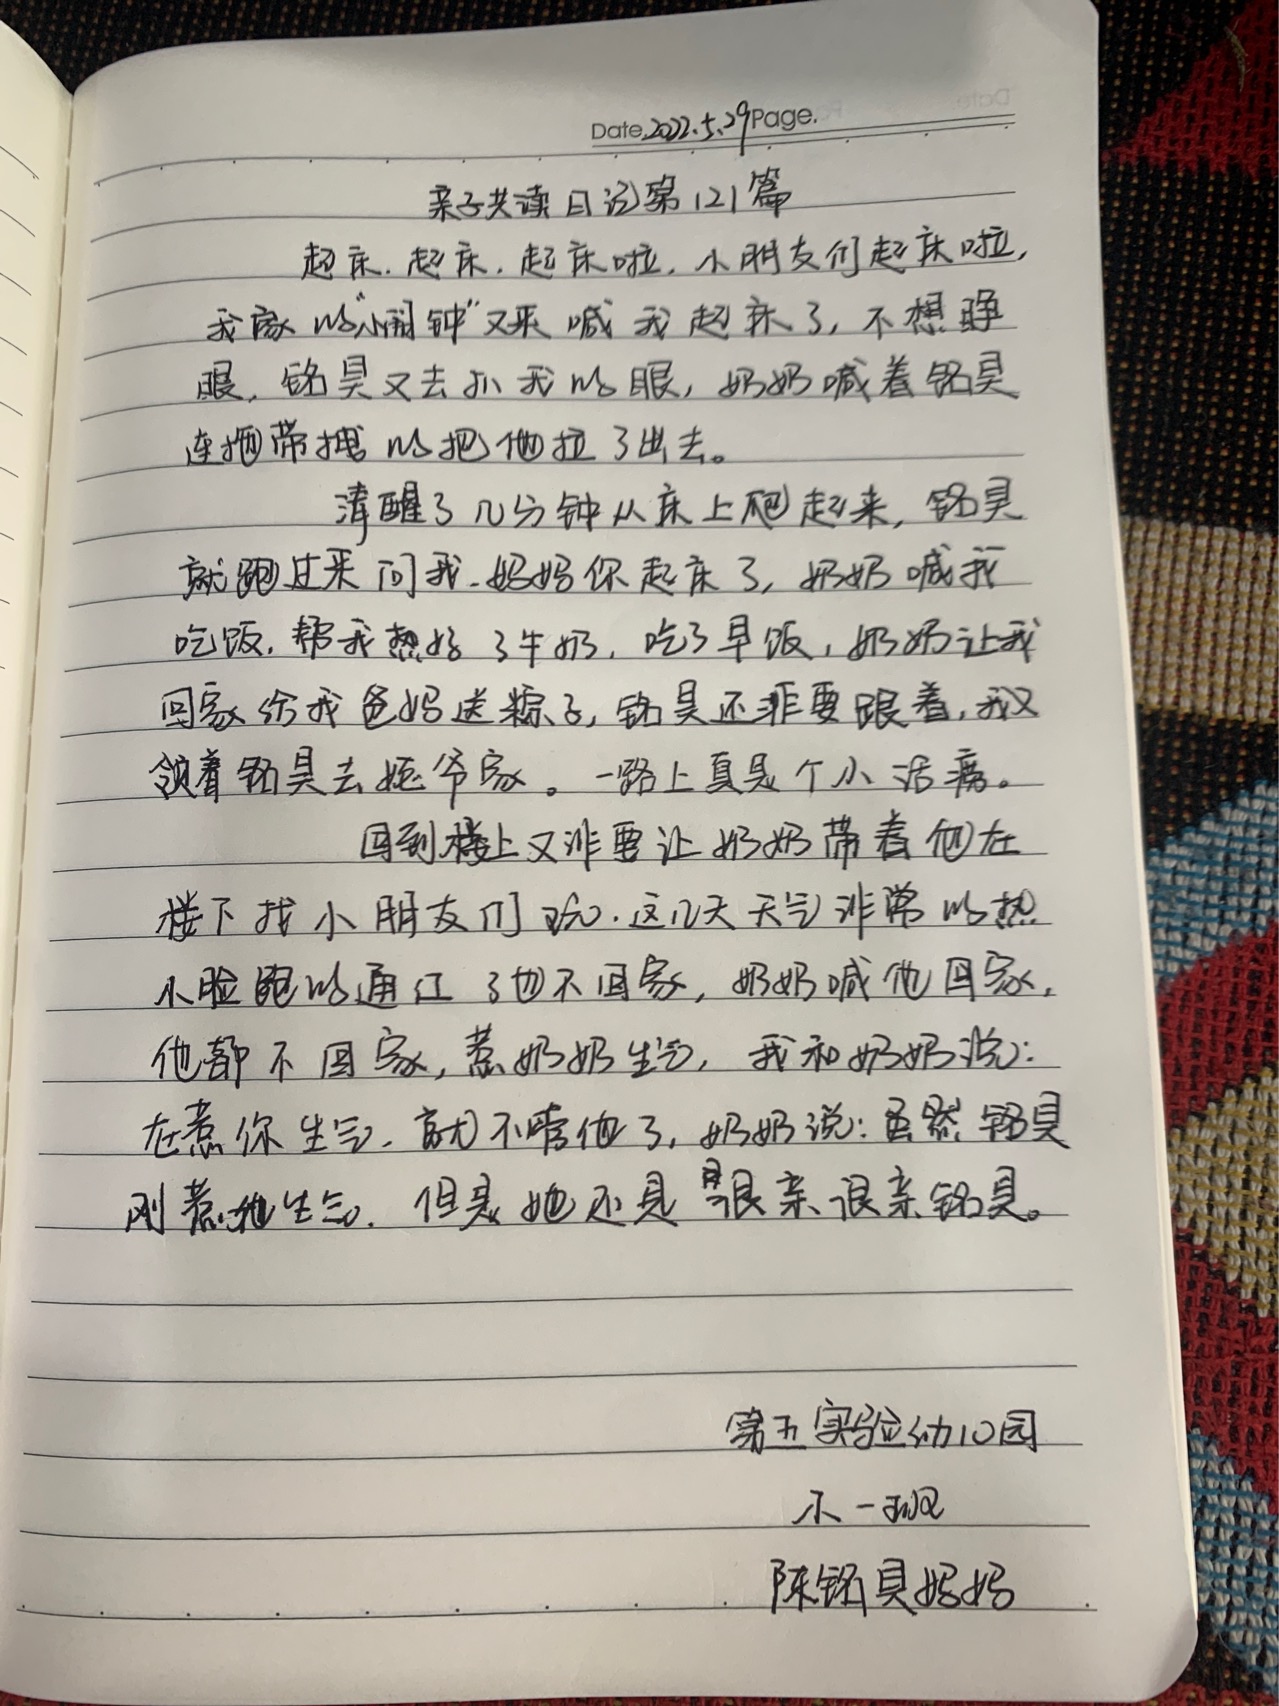 Date.2022.5.29Page.
亲子共读日记第121篇
起床.起床.起床啦.小朋友们起床啦,
我家的"小闹钟"又来喊我起床了,不想睁
眼,铭昊又去扒我的眼,奶奶喊着铭昊
连拖带拽的把他拉了出去。
清醒了几分钟从床上爬起来,铭昊
就跑过来问我.妈妈你起床了,奶奶喊我
吃饭.帮我热好了牛奶.吃了早饭,奶奶让我
回家给我爸妈送粽子,铭昊还非要跟着,我又
领着铭昊去姥爷家。一路上真是个小话痨。
回到楼上又非要让奶奶带着他在
楼下找小朋友们玩.这几天天气非常的热
小脸跑的通红了也不回家,奶奶喊他回家,
他都不回家,惹奶奶生气,我和奶奶说:
在惹你生气.就不啃他了,奶奶说:虽然铭昊
刚惹她生气.但是她还是很亲很亲铭昊。
第五实验幼儿园
小一班
陈铭昊妈妈